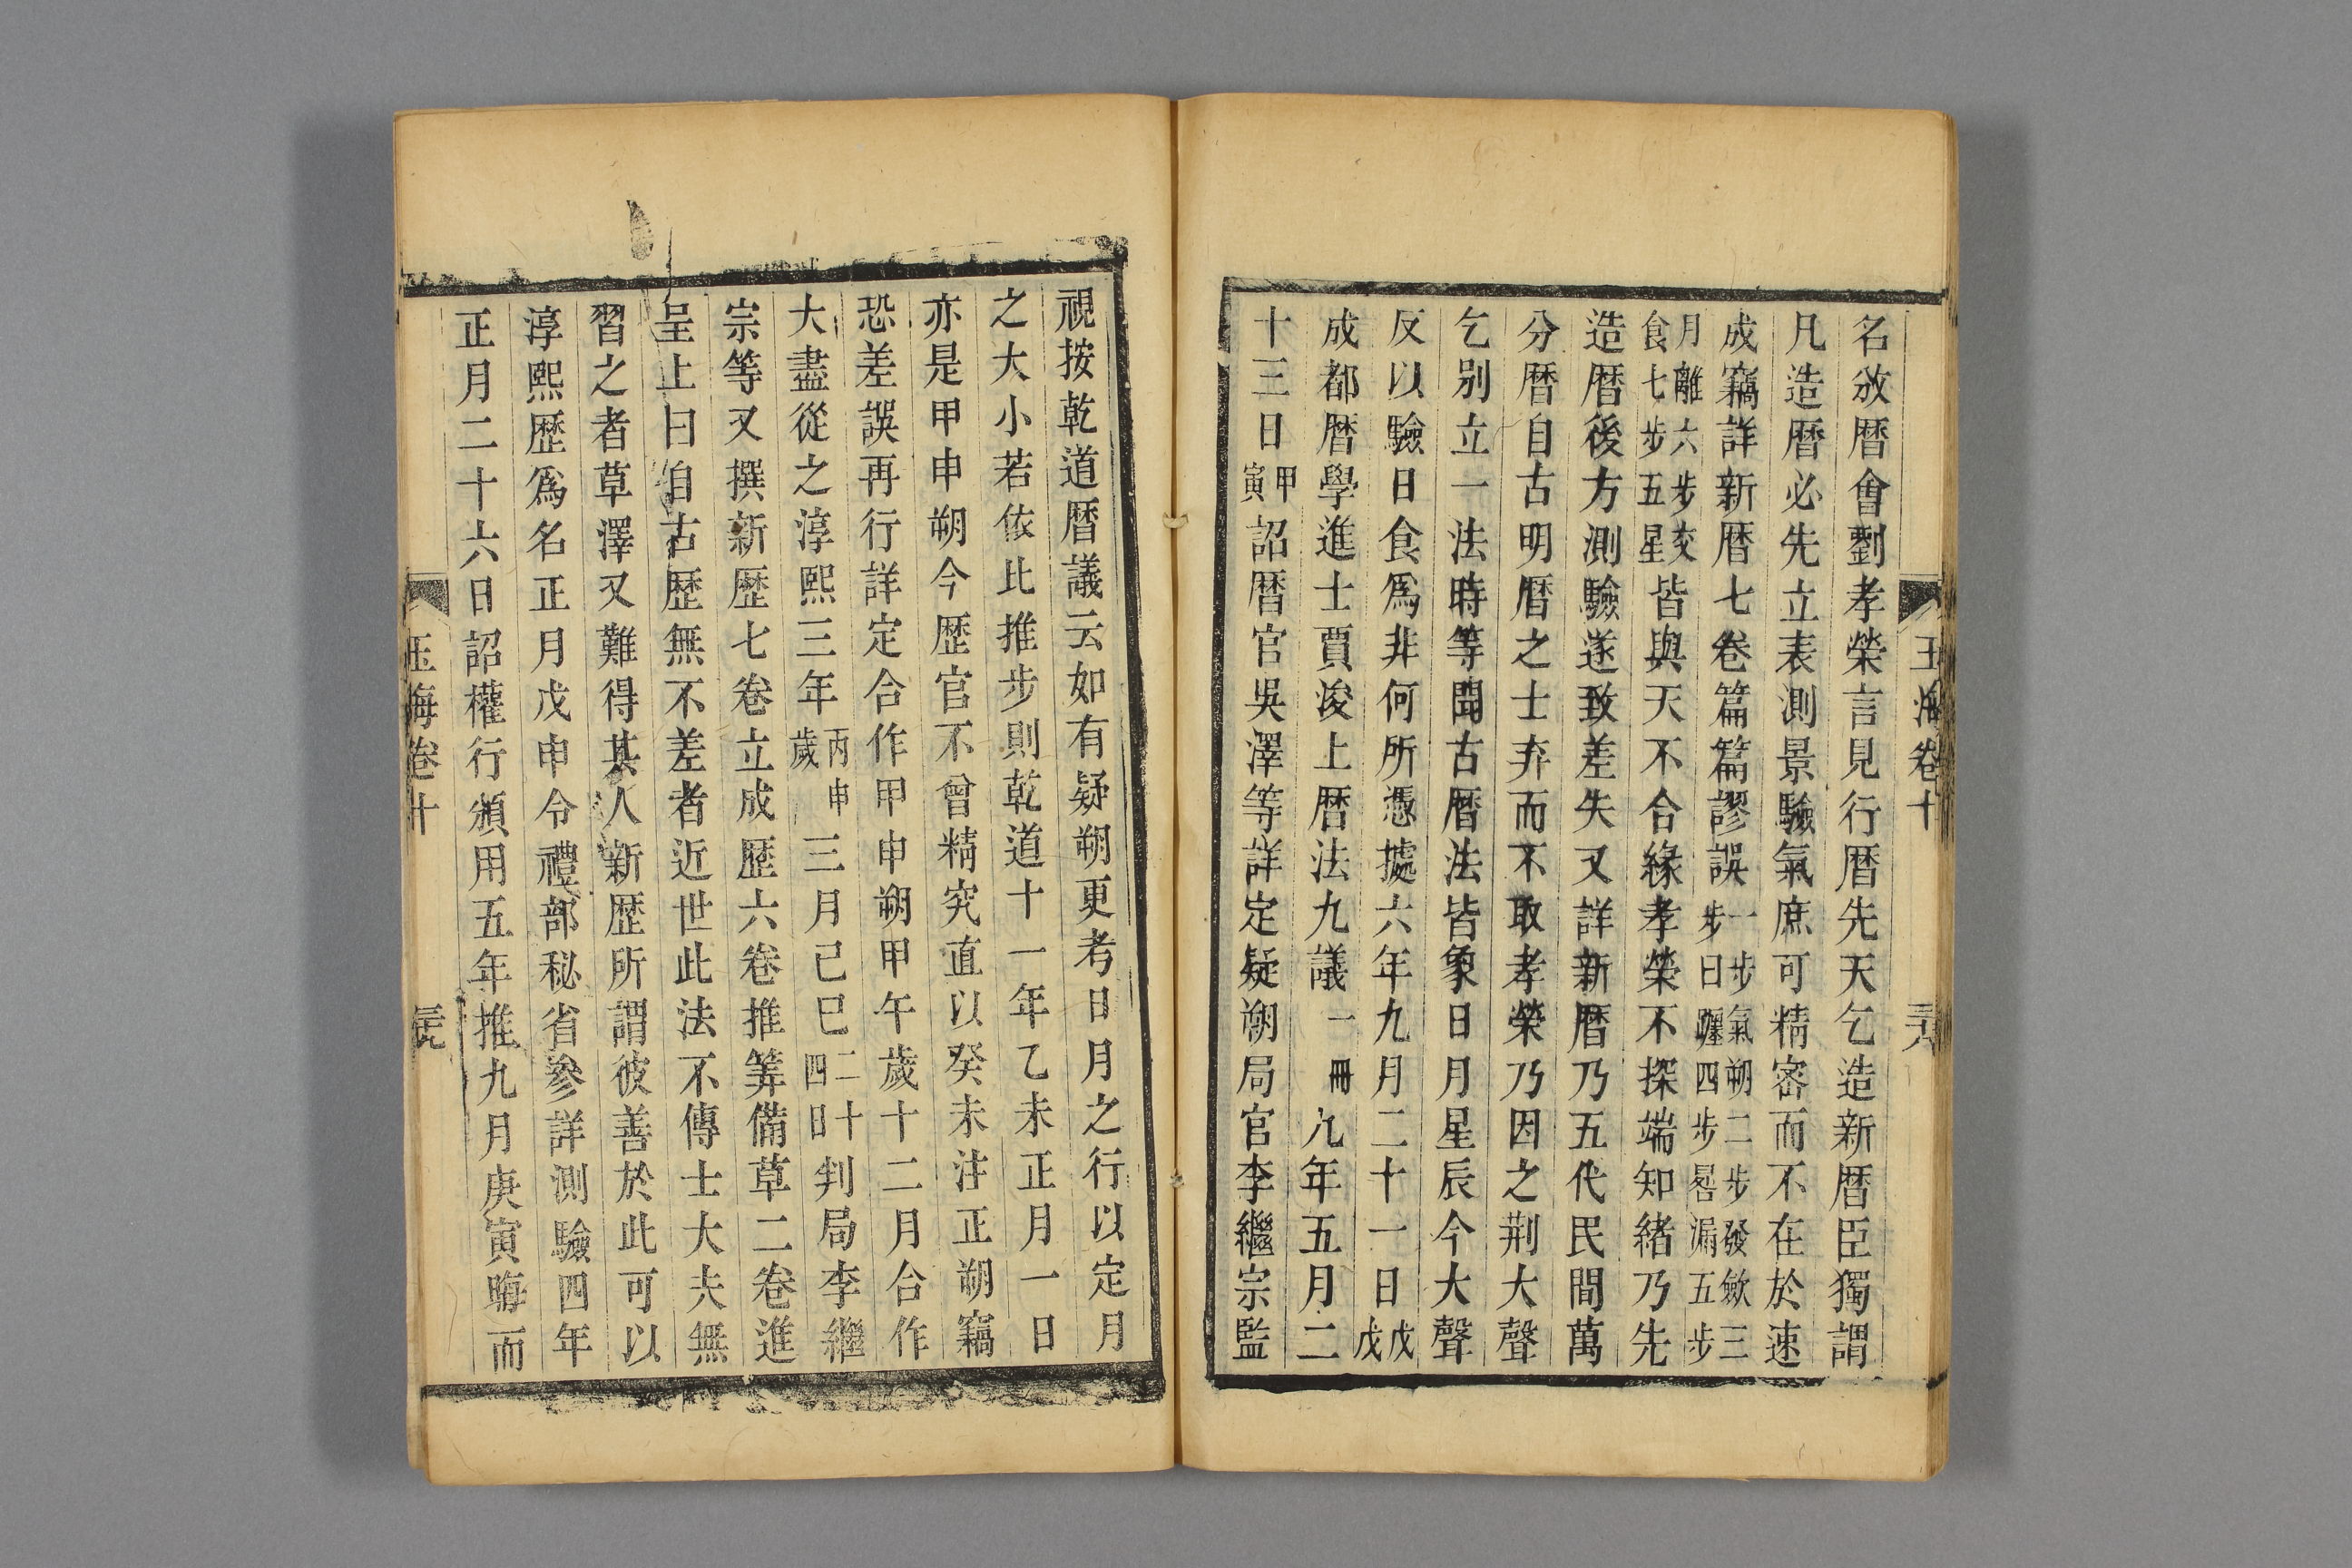 玉海卷十
名放暦會劉孝榮言見行暦先天乞造新暦臣獨謂
凡造暦必先立表測景驗氣庶可精密而不在於速
成竊詳新暦七卷篇篇謬誤一步氣朔二步發斂三步日躔四步晷漏五步
月離六步交食七步五星皆與天不合緣孝榮不探端知緒乃先
造暦後方測驗遂致差失又詳新暦乃五代民間萬
分暦自古明暦之士弃而不取孝榮乃因之荆大聲
乞别立一法時等聞古暦法皆象日月星辰今大聲
反以驗日食爲非何所憑據六年九月二十一日戊戌
成都暦學進士賈浚上暦法九議一冊九年五月二
十三日甲寅詔暦官吳澤等詳定疑朔局官李繼宗監
視按乾道暦議云如有疑朔更考日月之行以定月
之大小若依此推步則乾道十一年乙未正月一日
亦是甲申朔今歴官不曾精究直以癸未注正朔竊
恐差誤再行詳定合作甲申朔甲午歲十二月合作
大盡從之淳熙三年丙申歲三月己巳二十四日判局李繼
宗等又撰新歴七卷立成歴六卷推筭備草二卷進
呈上曰自古歴無不差者近世此法不傳士大夫無
習之者草澤又難得其人新歴所謂彼善於此可以
淳熙歴爲名正月戊申令禮部秘省參詳測驗四年
正月二十六日詔權行頒用五年推九月庚寅晦而
玉海卷十